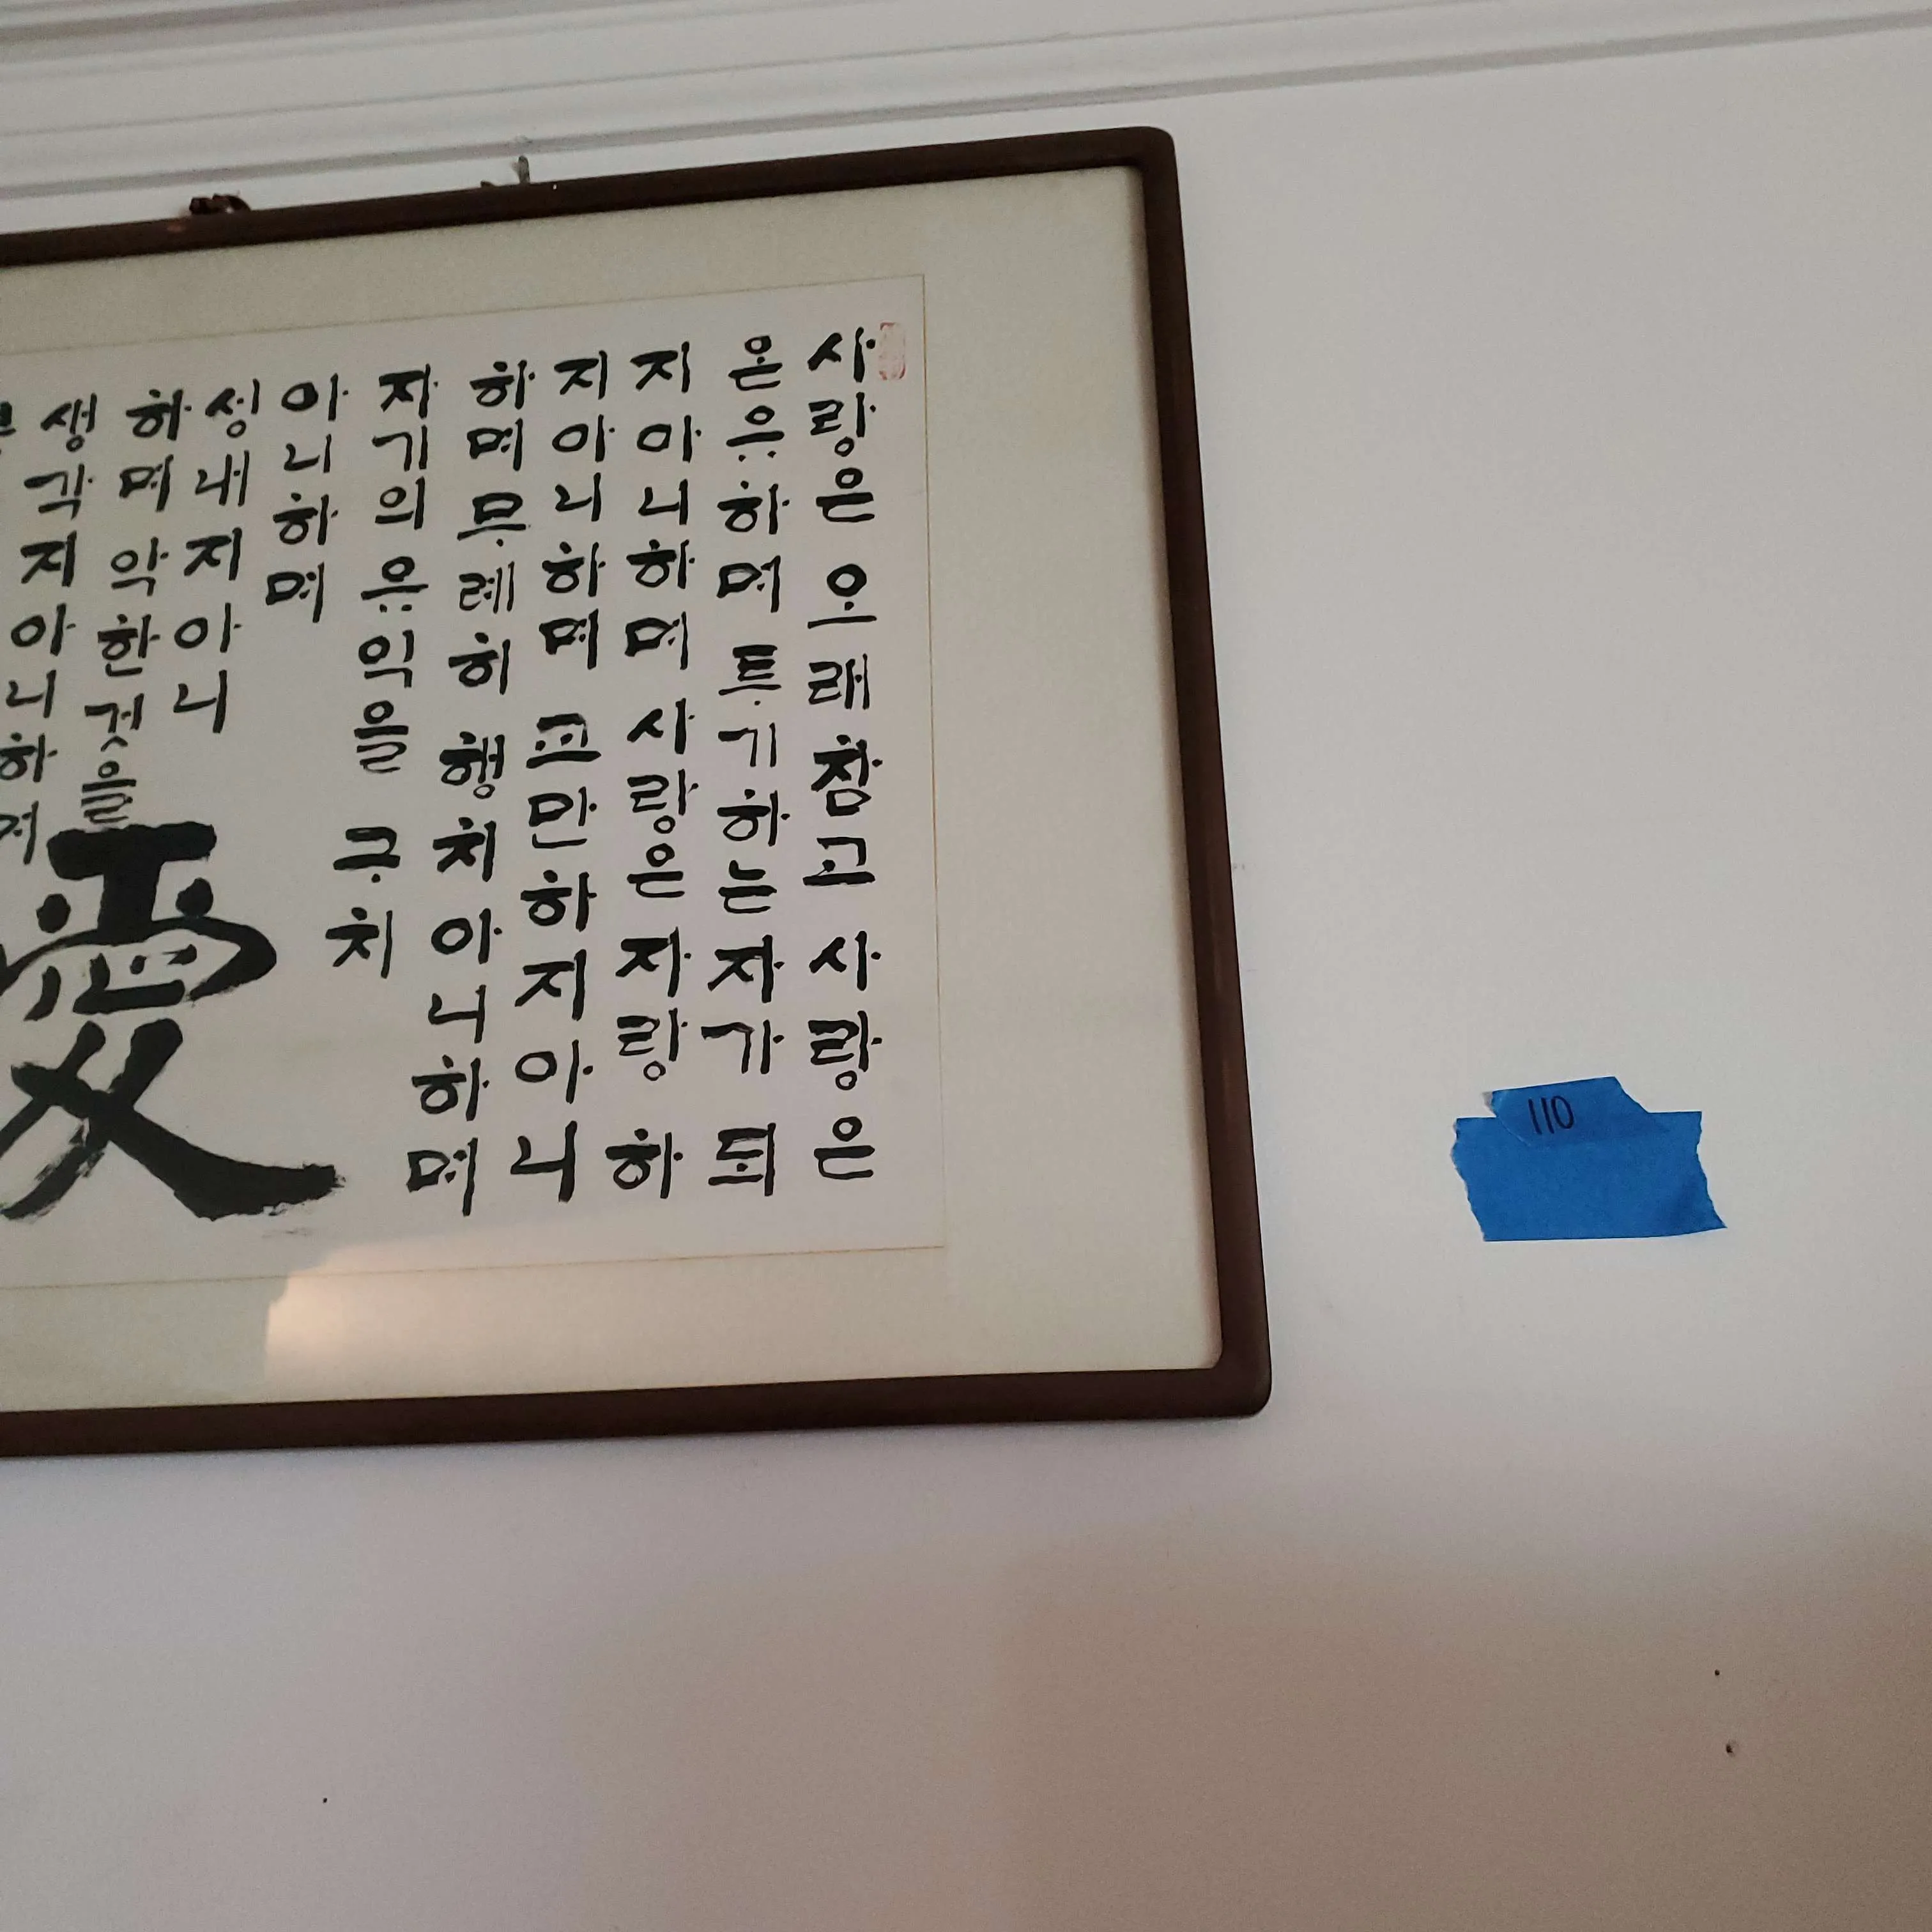 사랑은 오래 참고 사랑은
온유하며 투기하는 자가 되
지 아니하며 사랑은 자랑하
지 아니하며 교만하지 아니
하며 무례히 행치 아니하며
자기의 유익을 구치
아니하며
성내지 아니
하며 악한 것을
생각지 아니하며
愛
110